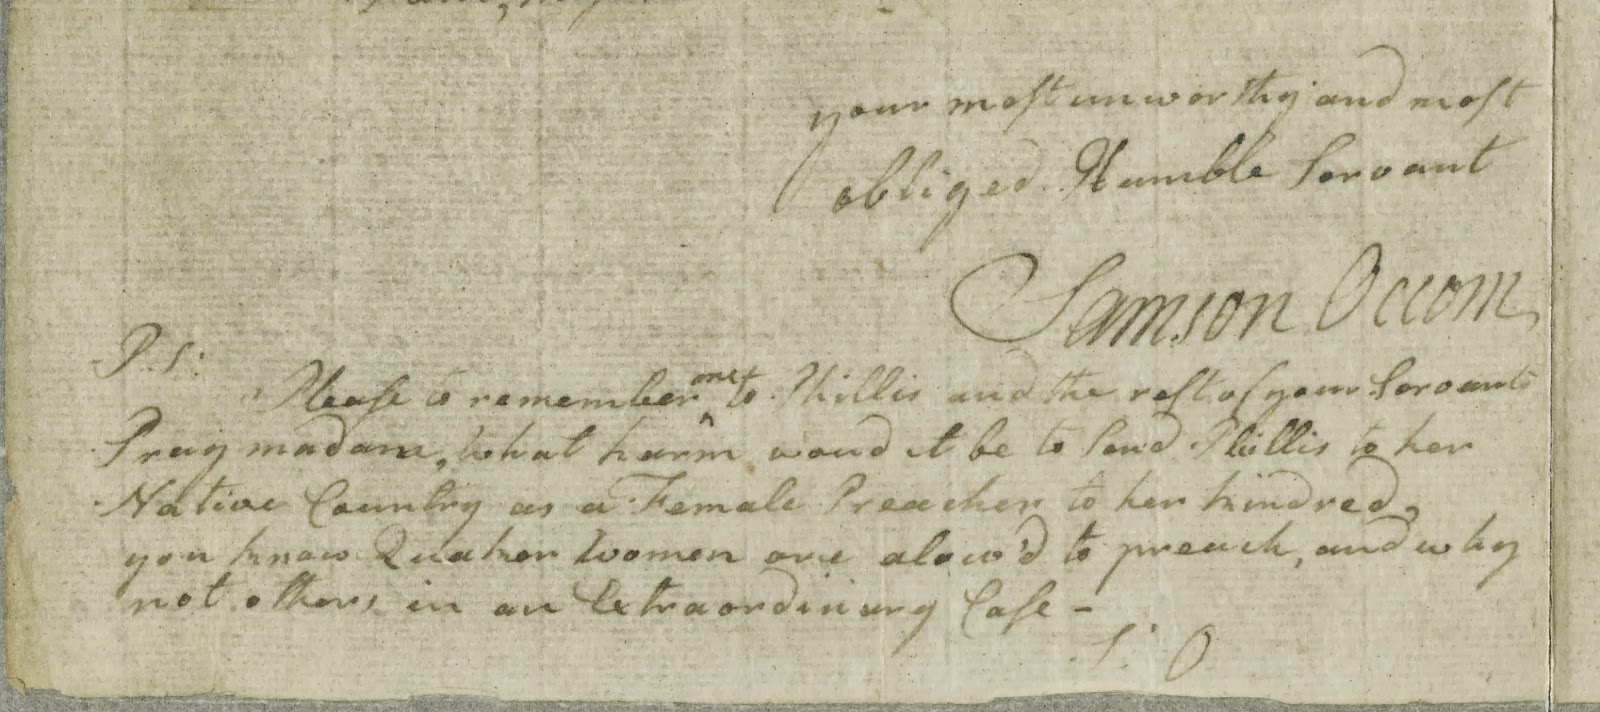 your most unworthy and most
obliged Humble Servant
Samson Occom
P.S:
Please to remember me to Phillis and the rest of your Servants
Pray madam, what harm woud it be to Send Phillis to her
Native Country as a Female Preacher to her kindred,
you know Quaker Women are alow'd to preach, and why
not others in an Extraordinary Case -
S: O